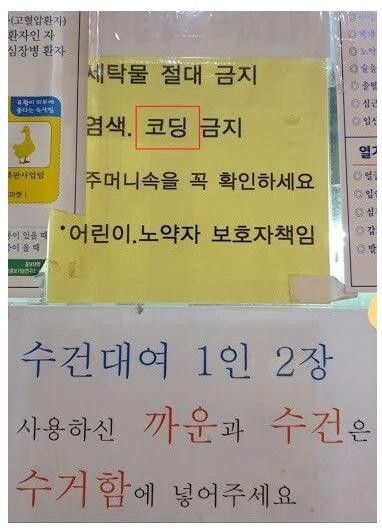 (고혈압환자)
환자인 자
심장병 환자
세탁물 절대 금지
염색. 코딩 금지
주머니속을 꼭 확인하세요
•어린이.노약자 보호자책임
수건대여 1인 2장
사용하신 까운과 수건은
수거함에 넣어주세요